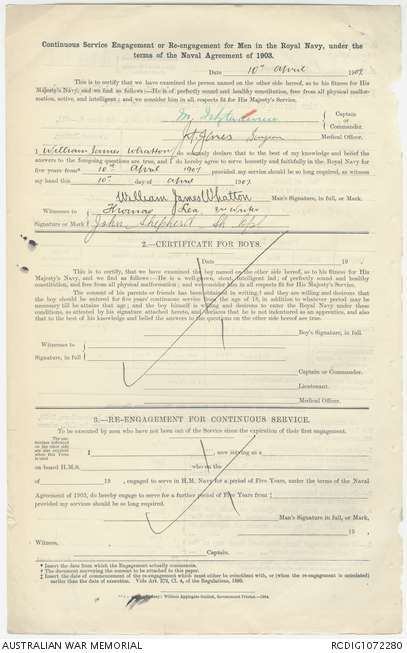 Continuous Service Engagement or Re-engagement for Men in the Royal Navy, under the
terms of the Naval Agreement of 1903.
Date 10th April 1907.
This is to certify that we have examined the person named on the other side hereof, as to his fitness for His
Majesty's Navy; and we find as follows:—He is of perfectly sound and healthy constitution, free from all physical mal-
formation, active, and intelligent; and we consider him in all respects fit for His Majesty's Service.
Captain
or
Commander.
Surgeon
Medical Officer.
I William James Whatton, do solemnly declare that to the best of my knowledge and belief the
answers to the foregoing questions are true, and I do hereby agree to serve honestly and faithfully in the Royal Navy for
five years from* 10th April 1907 provided my service should be so long required, as witness
my hand this 10th day of April 1907.
William James Whatton Man's Signature, in full, or Mark.
Witnesses to
Signature or Mark John Shepherd Sh Cpl
2.—CERTIFICATE FOR BOYS.
Date 19
This is to certify, that we have examined the boy named on the other side hereof, as to his fitness for His
Majesty's Navy, and we find as follows: He is a well-grown, stout, intelligent lad; of perfectly sound and healthy
constitution, and free from all physical malformation; and we consider him in all respects fit for His Majesty's Service.
The consent of his parents or friends has been obtained in writing,† and they are willing and desirous that
the boy should be entered for five years' continuous service from the age of 18, in addition to whatever period may be
necessary till he attains that age; and the boy himself is willing and desirous to enter the Royal Navy under these
conditions, as attested by his signature attached hereto, and declares that he is not indentured as an apprentice, and also
that to the best of his knowledge and belief the answers to the questions on the other side hereof are true.
Boy's Signature, in full.
Witnesses to
Signature, in full
Captain or Commander.
Lieutenant.
Medical Officer.
3.—RE-ENGAGEMENT FOR CONTINUOUS SERVICE.
To be executed by men who have not been out of the Service since the expiration of their first engagement.
I , now serving as a
on board H.M.S. who on the
of 19 , engaged to serve in H.M. Navy for a period of Five Years, under the terms of the Naval
Agreement of 1903, do hereby engage to serve for a further period of Five Years from‡
provided my services should be so long required.
Man's Signature in full, or Mark,
19
Witness,
Captain.
* Insert the date from which the Engagement actually commences.
† The document conveying the consent to be attached to this paper.
‡ Insert the date of commencement of the re-engagement which must either be coincident with, or (when the re-engagement is antedated)
earlier than the date of execution. Vide Art.
Sydney: William Applegate Gullick, Government Printer.
AUSTRALIAN WAR MEMORIAL
RCDIG1072280